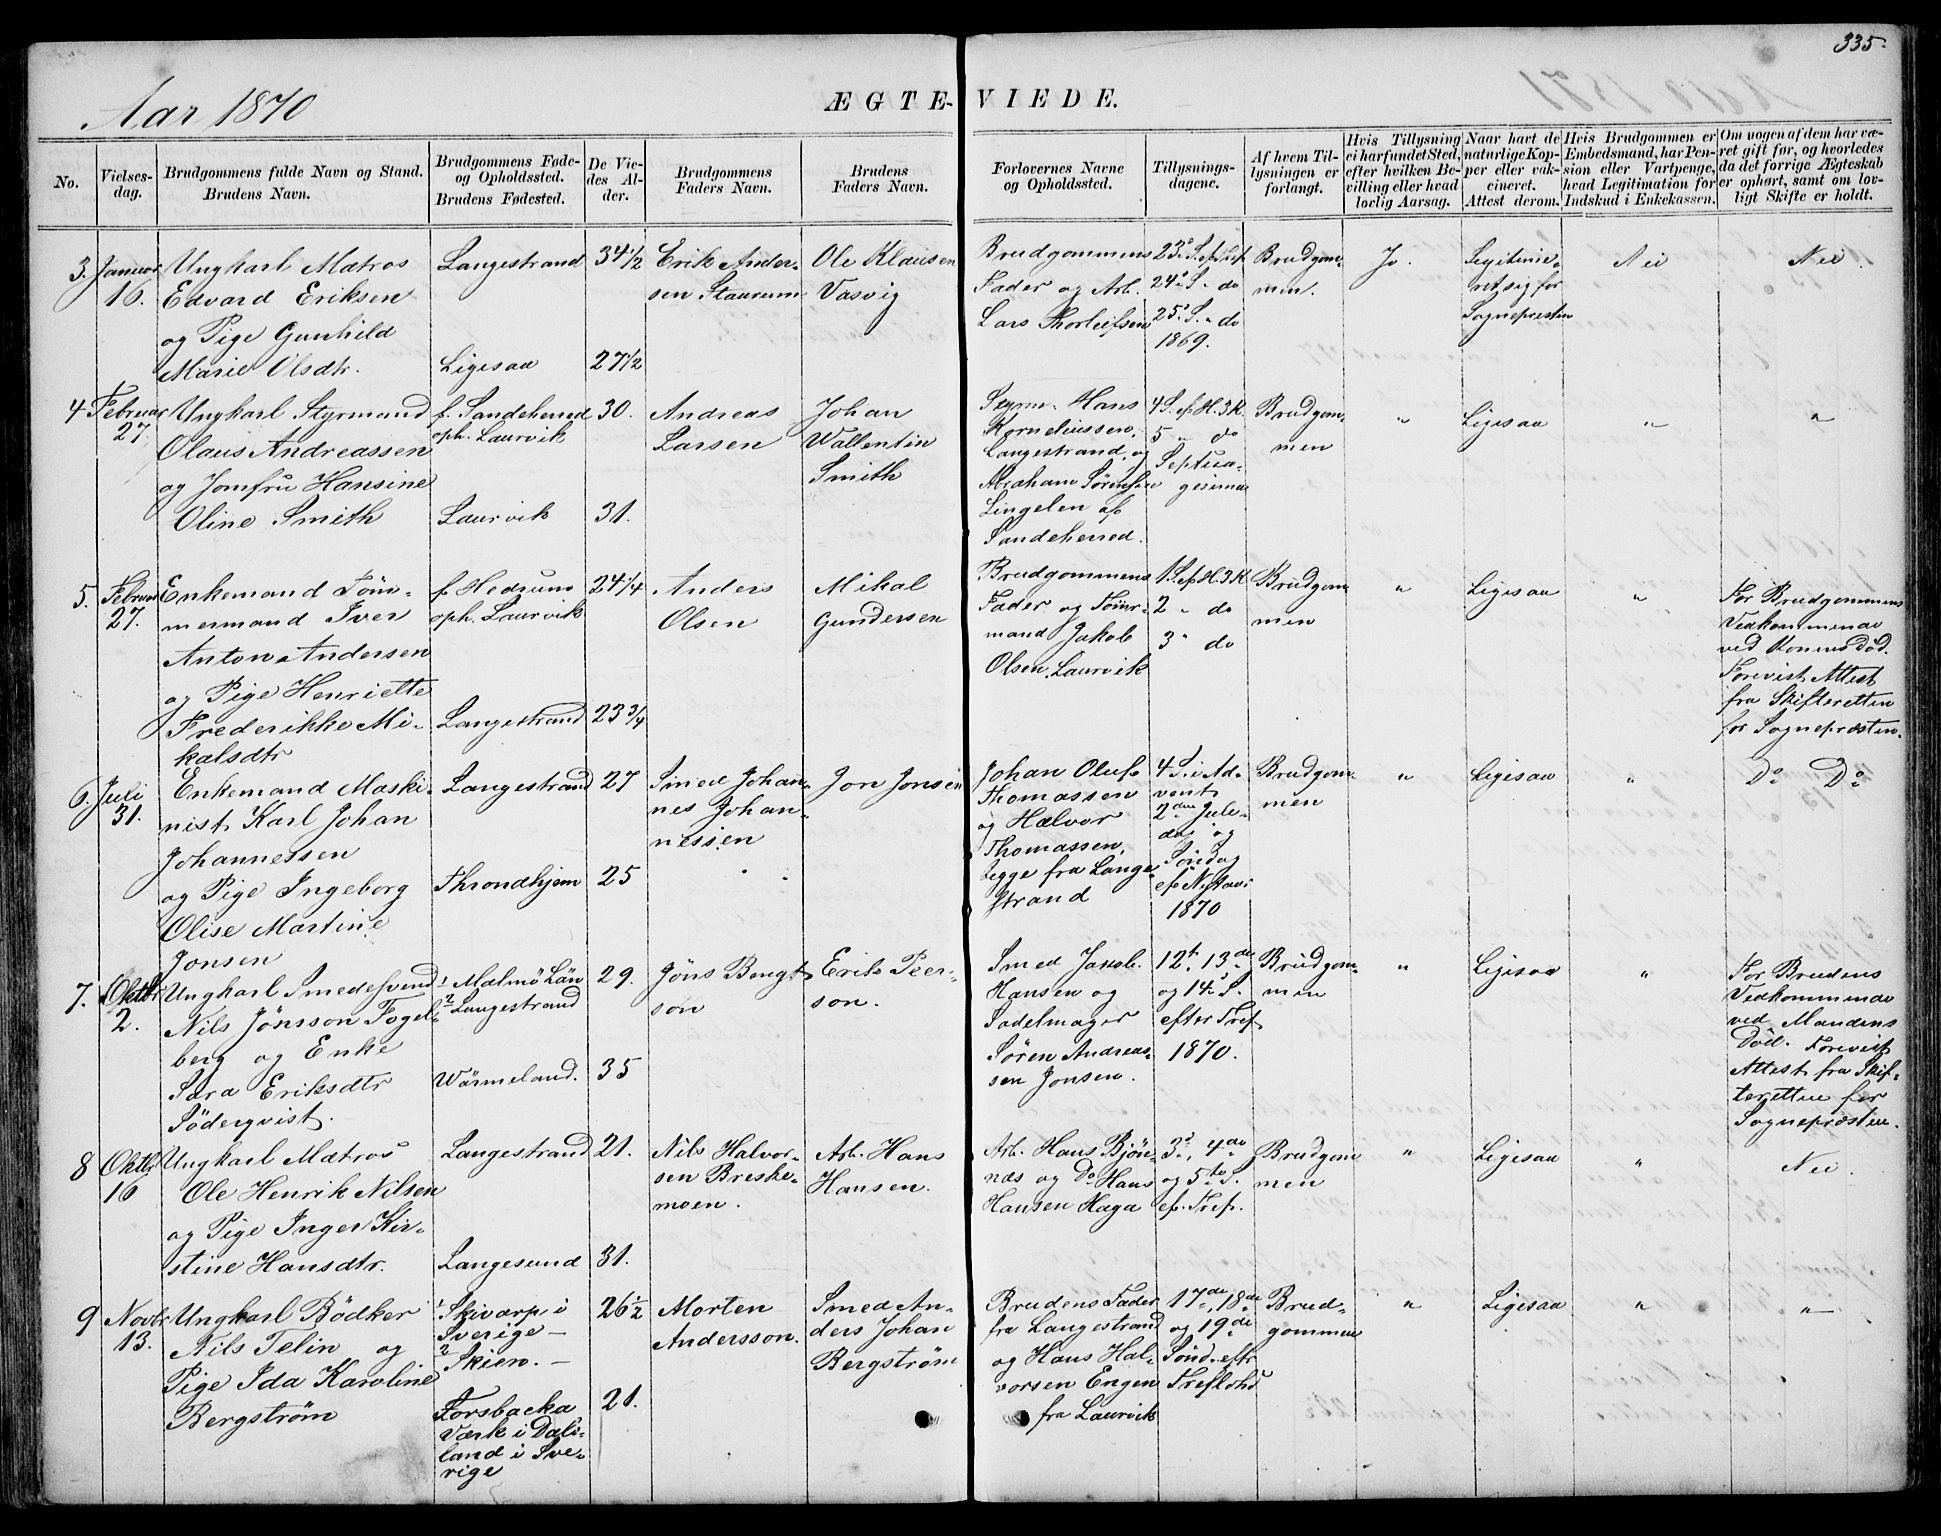 335.
Aar 1870
ÆGTE-VIEDE.
No.
Vielses-
dag.
Brudgommens fulde Navn og Stand.
Brudens Navn.
Brudgommens Føde-
og Opholdssted.
Brudens Fødested.
De Vie-
des Al-
der.
Brudgommens
Faders Navn.
Brudens
Faders Navn.
Forlovernes Navne
og Opholdssted.
Tillysnings-
dagene.
Af hvem Til-
lysningen er
forlangt.
Hvis Tillysning
ei har fundet Sted,
efter hvilken Be-
villing eller hvad
lovlig Aarsag.
Naar havt de
naturlige Kop-
per eller vak-
cineret.
Attest derom.
Hvis Brudgommen er
Embedsmand, har Pen-
sion eller Vartpenge,
hvad Legitimation for
Indskud i Enkekassen.
Om nogen af dem har væ-
ret gift før, og hvorledes
da det forrige Ægteskab
er ophørt, samt om lov-
ligt Skifte er holdt.
3.
Januar
16.
Ungkarl Matros
Edvard Eriksen
og Pige Gunhild
Marie Olsdtr.
Langestrand
Ligesaa
34 1/2
27 1/2
Erik Ander-
sen Staurum
Ole Klausen
Vasvig
Brudgommens
Fader og Arb.
Lars Thorleifsen
23de S. ef. Tref.
24de S. do
25de S. do
1869.
Brudgom-
men.
Jo.
Legitime-
ret sig for
Sognepresten
Nei
Nei.
4
Februar
27.
Ungkarl Styrmand
Olaus Andreassen
og Jomfru Hansine
Oline Smith
f. Sandeherred
oph. Laurvik
Laurvik
30.
31.
Andreas
Larsen
Johan
Wallentin
Smith
Styrm. Hans
Korneliussen,
Langestrand, og
Abraham Sørensen
Lingelen af
Sandeherred.
4 S. ef. H. 3 K.
5 " do
Septua-
gesima
Brudgom-
men
"
Ligesaa
"
"
5.
Februar
27.
Enkemand Tøm-
mermand Iver
Anton Andersen
og Pige Henriette
Frederikke Mi-
kalsdtr
f. Hedrum
oph. Laurvik
Langestrand
24 1/4
23 3/4
Anders
Olsen
Mikal
Gundersen
Brudgommens
Fader og Tømr-
mand Jakob
Olsen, Laurvik
1 S. ef. H. 3 K.
2 " do
3 " do
Brudgom-
men
"
Ligesaa
"
For Brudgommens
Vedkommende
ved Konens Død.
Forevist Attest
fra Skifteretten
for Sognepræsten.
6.
Juli
31.
Enkemand Maski-
nist, Karl Johan
Johannessen
og Pige Ingeborg
Olise Martine
Jonsen
Langestrand
Throndhjem
27
25
Smed Johan-
nes Johan-
nessen
Jon Jonsen
Johan Oluf
Thomassen
og Halvor
Thomassen,
begge fra Lange-
strand
4 S. i Ad-
vent
2den Jule-
dag og
Søndag
ef. Nytaar
1870
Brudgom-
men
"
Ligesaa
"
Do Do
7.
Oktbr
2.
Ungkarl Smedesvend
Nils Jönsson Fogel-
berg og Enke
Sara Eriksdtr
Söderqvist.
1 Malmö Län
2 Langestrand
Wärmeland.
29.
35
Jöns Bengt-
son
Erik Peer-
son.
Smed Jakob
Hansen og
Sadelmager
Søren Andreas-
sen Jonsen.
12te, 13de
og 14de S.
efter Tref.
1870.
Brudgom-
men
"
Ligesaa
"
For Brudens
Vedkommende
ved Mandens
Død. Forevist
Attest fra Skif-
teretten for
Sognepræsten.
8
Oktbr
16
Ungkarl Matros
Ole Henrik Nilsen
og Pige Inger Kir-
stine Hansdtr.
Langestrand
Langesund
21.
31.
Nils Halvor-
sen Breske-
moen.
Arb. Hans
Hansen.
Arb. Hans Bjør-
næs og Do Hans
Hansen Haga
3de, 4de
og 5te S.
ef. Tref.
Brudgom-
men
"
Ligesaa
"
Nei.
9
Novbr
13.
Ungkarl Bödker
Nils Telin og
Pige Ida Karoline
Bergström
1 Skivarp i
Sverige -
2 Skien. -
Forsbacka
Værk i Dals-
land i Sve-
rige
26 1/2
21.
Morten
Andersson.
Smed An-
ders Johan
Bergström
Brudens Fader
fra Langestrand
og Hans Hal-
vorsen Engen
fra Laurvik
17de, 18de
og 19de
Sønd. eftr
Trefold.
Brud-
gommen
"
Ligesaa
"
"